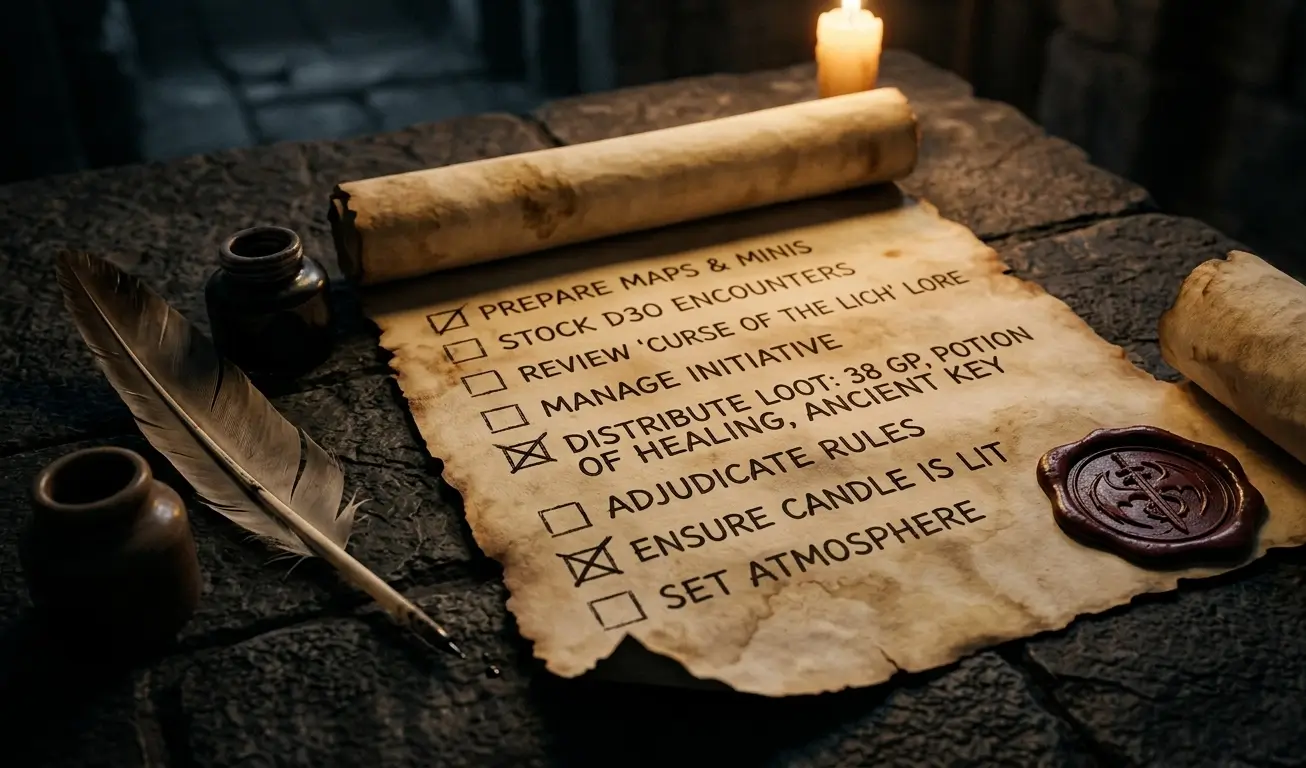 PREPARE MAPS & MINIS
STOCK D30 ENCOUNTERS
REVIEW 'CURSE OF THE LICH' LORE
MANAGE INITIATIVE
DISTRIBUTE LOOT: 38 GP, POTION
OF HEALING, ANCIENT KEY
ADJUDICATE RULES
ENSURE CANDLE IS LIT
SET ATMOSPHERE